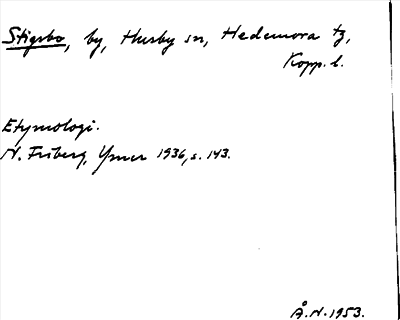 Stigsbo, by, Husby sn, Hedemora tg,
Kopp. l.
Etymologi.
N. Friberg, Ymer 1936, s. 143.
Å.N. 1953.